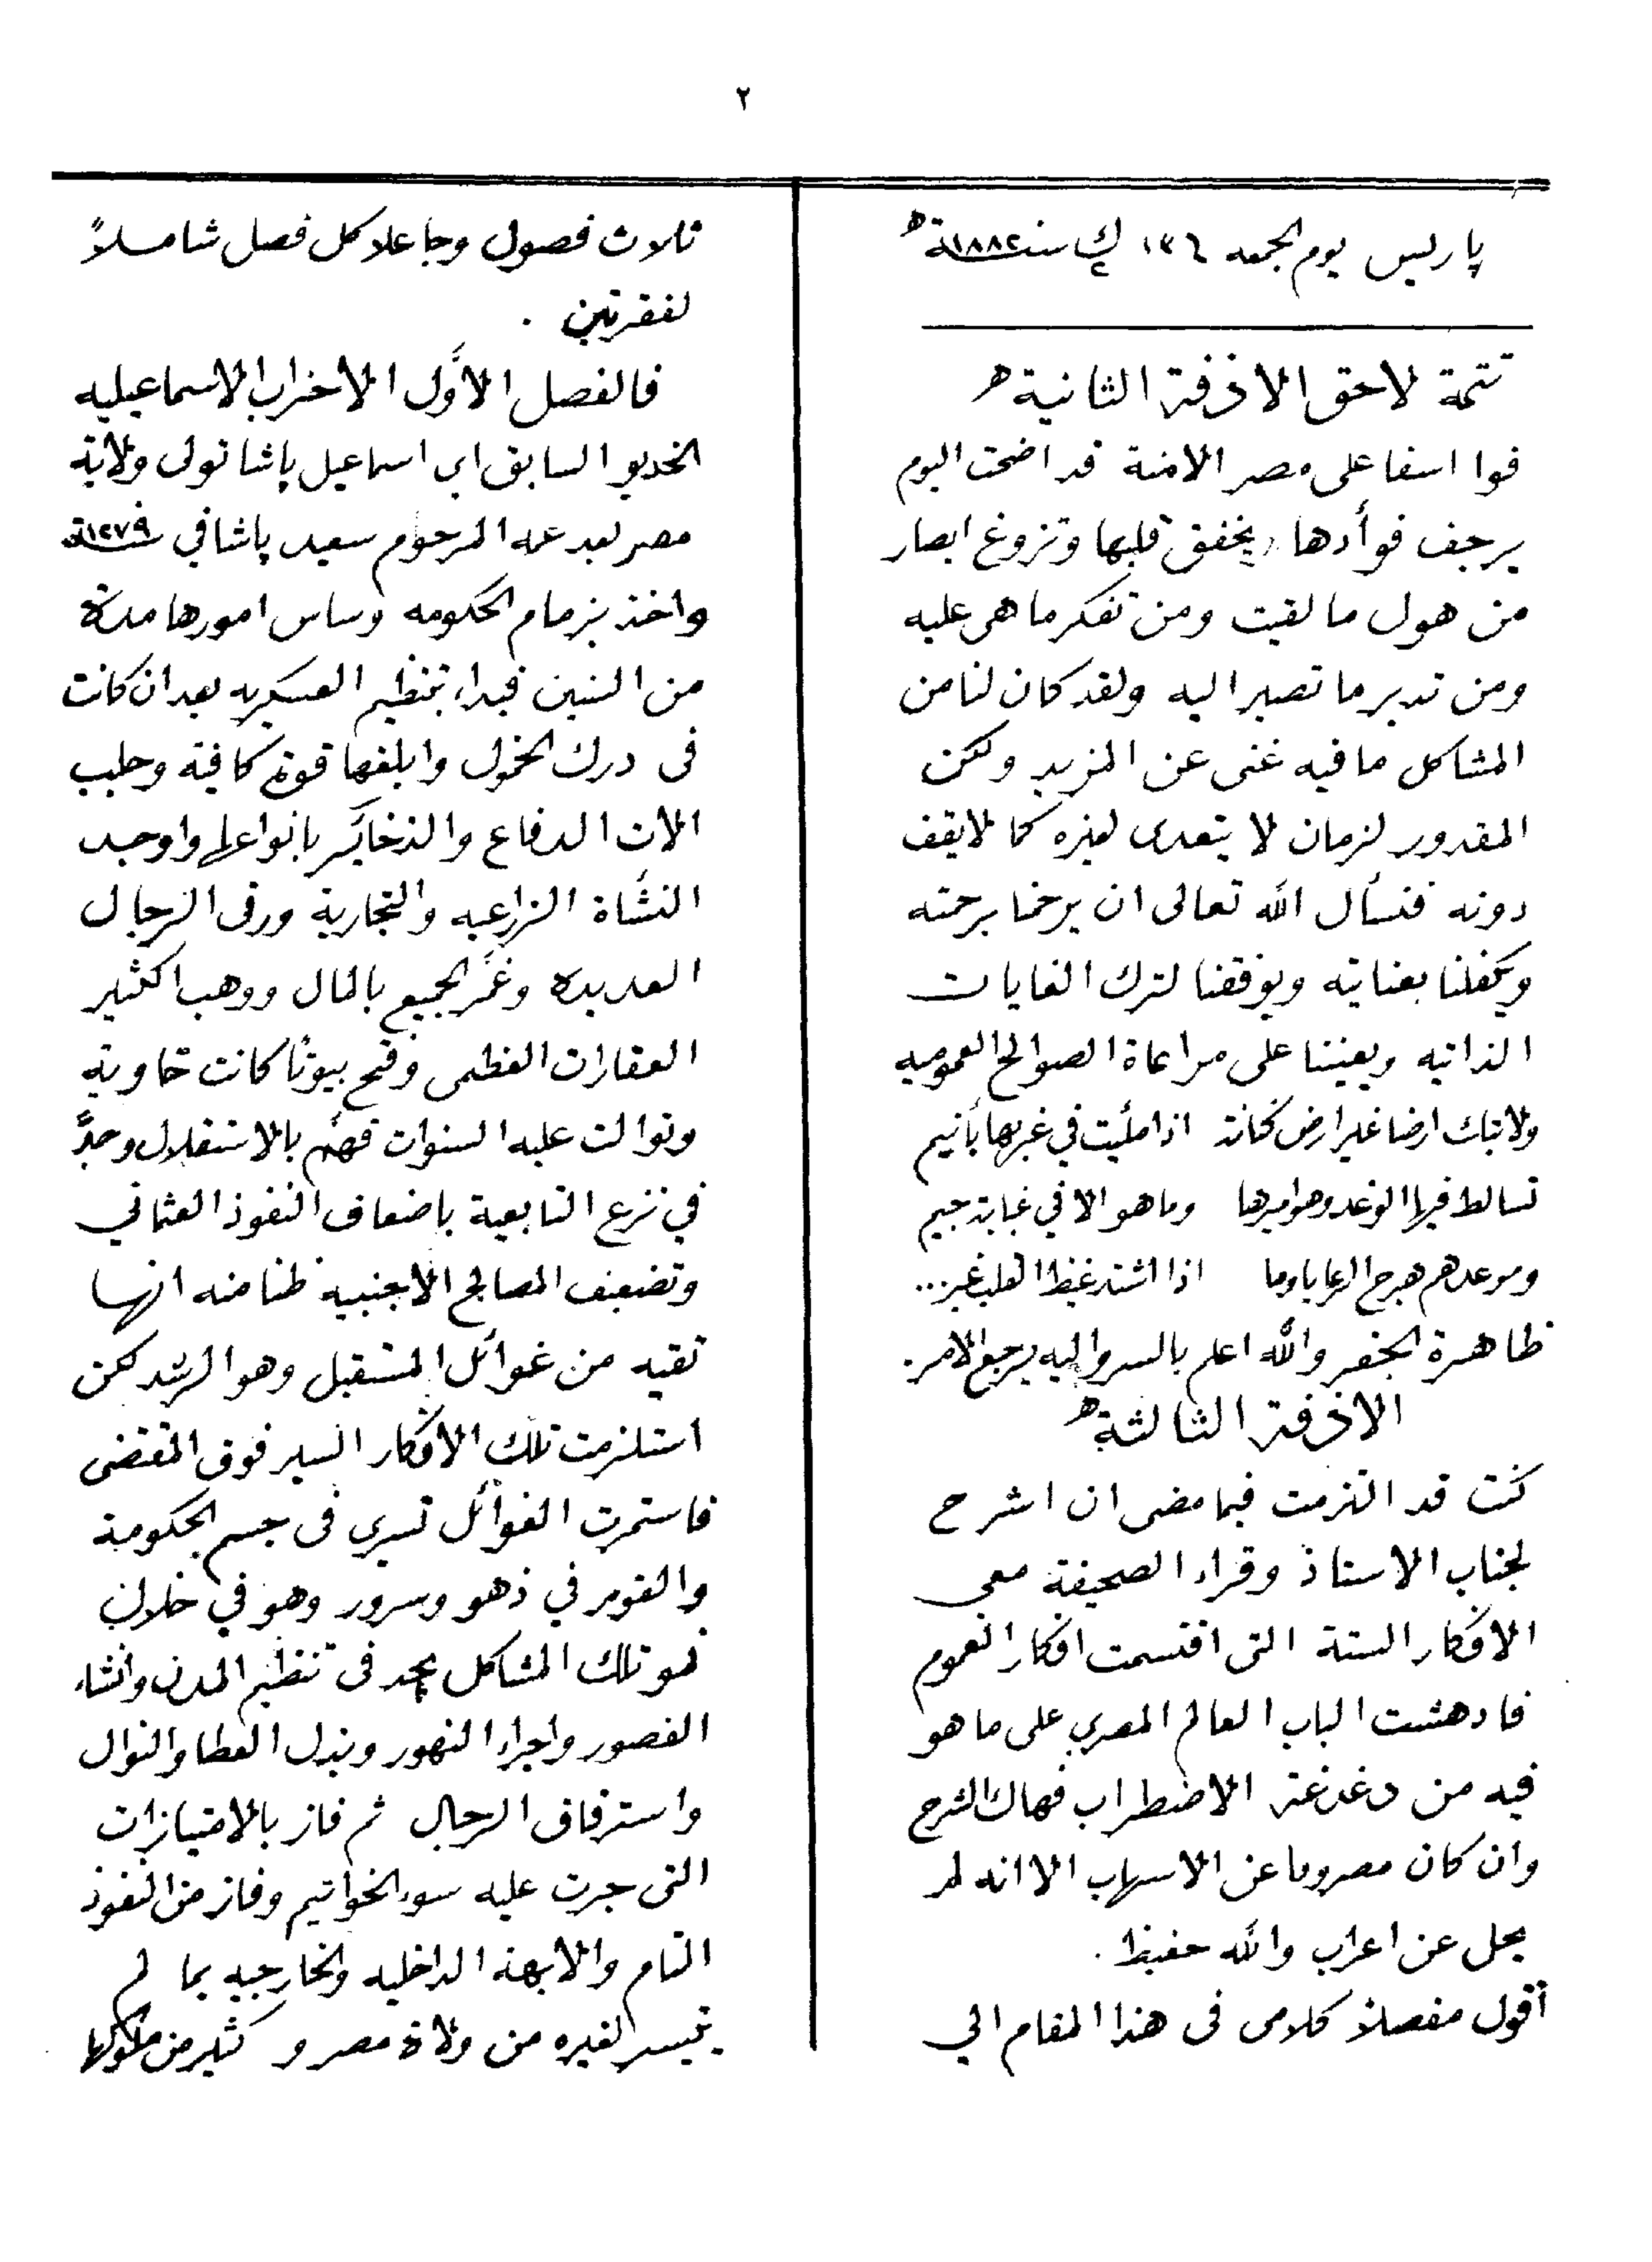 ٢
پاريس يوم الجمعه ك٢ سنة ١٨٨٢
تتمة لاحق الازفة الثانية
فوا اسفا على مصر الامنة قد اضحت اليوم
يرجف فوأدها ويخفق قلبها وتزوغ ابصار
من هول ما لقيت ومن تفكر ما هى عليه
ومن تدبر ما تصير اليه ولقد كان لنا من
المشاكل ما فيه غنى عن المزيد ولكن
المقدور لزمان لا يتعدى لغيره كما لا يقف
دونه فنسأل الله تعالى ان يرحمنا برحمته
ويكفلنا بعنايته ويوفقنا لترك الغايات
الذاتيه ويعيننا على مراعاة الصوالح العموميه
ولاتك ارضا غير ارض كنانة اذا مليت في غربها
فيها الوغد وهو اميرها وما هو الا في جيم
وموعدهم هرج الرعايا وما اذا اشتد غيظ القلب غير...
ظاهرة الجفر والله اعلم بالسر واليه يرجع الامر.
الازفة الثالثة
كنت قد التزمت فيما مضى ان اشرح
لجناب الاستاذ وقراء الصحيفة معى
الافكار الستة التى اقتسمت افكار العموم
فادهشت الباب العالم المصري على ما هو
فيه من دغدغة الاضطراب فهاك الشرح
وان كان مصروما عن الاسهاب الا انه لم
يحل عن اعراب والله حفيظ.
أقول مفصلاً كلامى فى هذا المقام الي
ثلاث فصول وجاعلا كل فصل شاملاً
لفقرتين.
فالفصل الأول الاحزاب الاسماعيليه
الخديو السابق اى اسماعيل پاشا تولى ولاية
مصر بعد عمه المرحوم سعيد پاشا في سنة ١٢٧٩
واخذ بزمام الحكومه وساس امورها مدة
من السنين فبداء بتنظيم العسكريه بعد ان كانت
فى درك الخمول وابلغها قوة كافية وجلب
الات الدفاع والذخائر بانواعها واوجد
النشأة الزراعيه والتجارية ورقى الرجال
العديدة وغمر الجميع بالمال ووهب الكثير
العقارات العظمى وفتح بيوتًا كانت خاوية
وتوالت عليه السنوات فهمّ بالاستقلال وجدّ
في نزع التابعية باضعاف النفوذ العثماني
وتضعيف المصالح الاجنبيه ظنا منه انها
تقيه من غوائل المستقبل وهو الرشد لكن
استلزمت تلك الافكار السير فوق المقتضى
فاستمرت الغوائل تسري فى جسم الحكومة
والقوم في زهو وسرور وهو في خلال
نمو تلك المشاكل يجد فى تنظيم المدن وانشاء
القصور واجراء النهور وبذل العطا والنوال
واسترقاق الرجال ثم فاز بالامتيازات
التى جرت عليه سوء الخواتيم وفاز من النفوذ
التام والابهة الداخليه والخارجيه بما لم
يتيسر لغيره من ولاة مصر و كثير من ملوكها